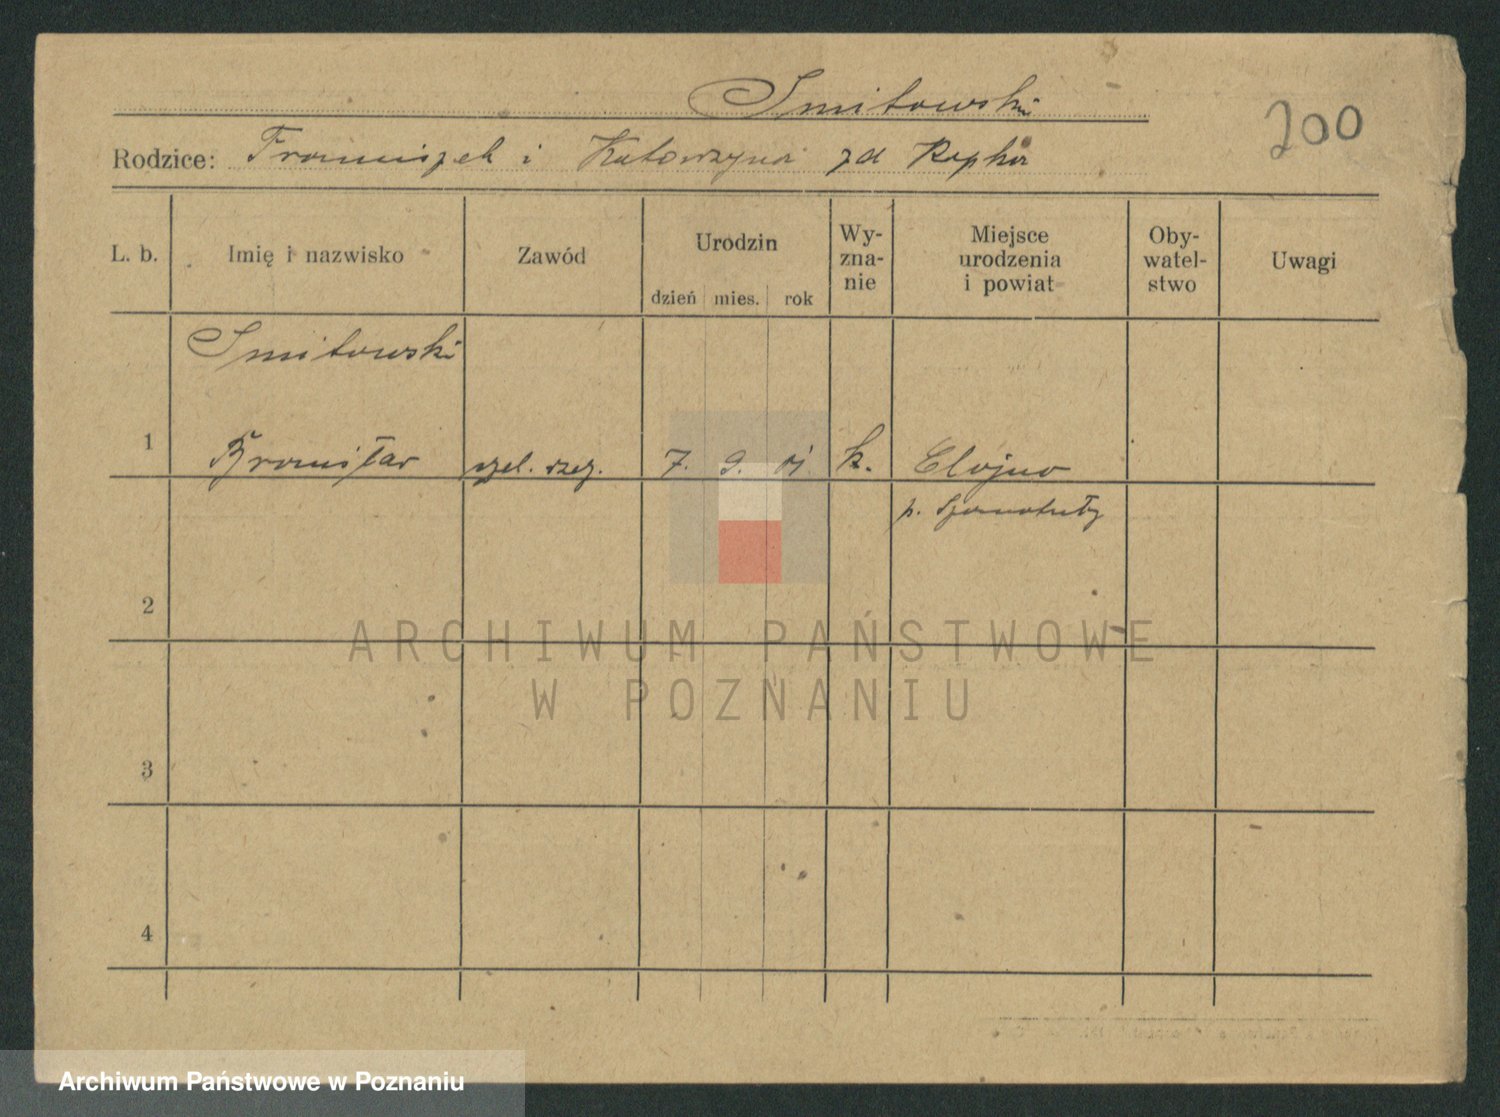 Smitowski
200
Rodzice: Franciszek i Katarzyna zd Rapka
L. b.
Imię i nazwisko
Zawód
Urodzin
dzień mies. rok
Wy-
zna-
nie
Miejsce
urodzenia
i powiat
Oby-
watel-
stwo
Uwagi
Smitowski
1 Bronisław czel. rzeź. 7. 9. 01 k.
p. Szamotuły
2
3
4
ARCHIWUM PAŃSTWOWE
W POZNANIU
Archiwum Państwowe w Poznaniu